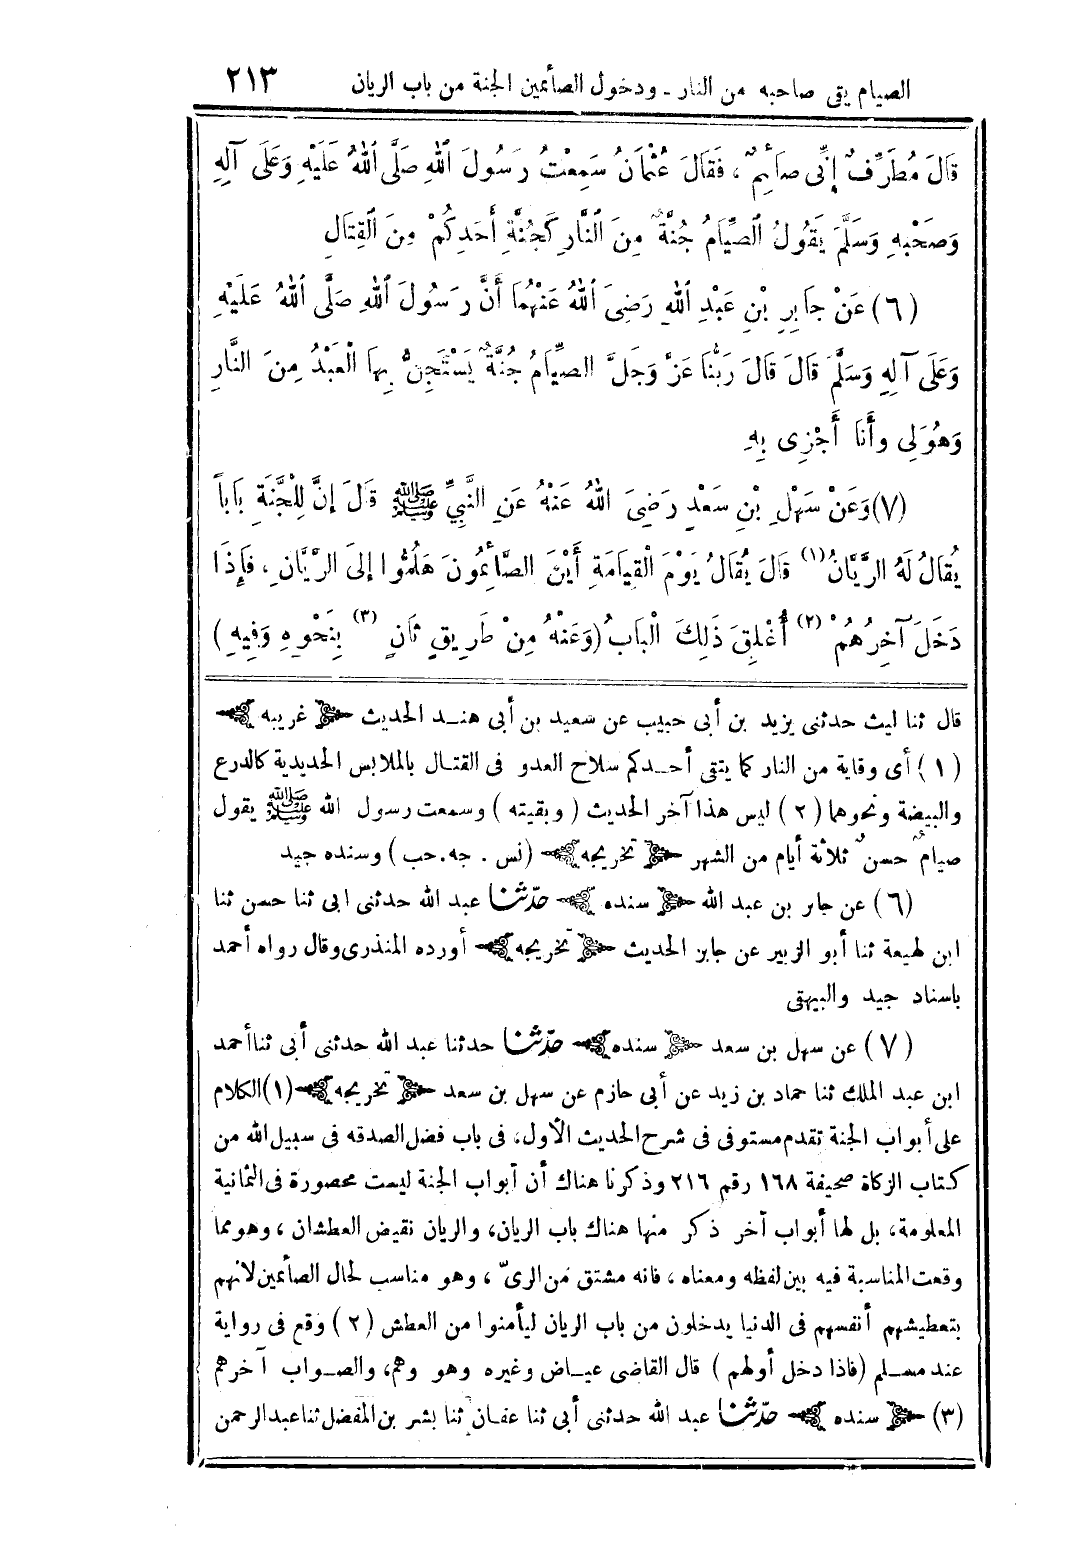 الصيام يقى صاحبه من النار ـ ودخول الصائمين الجنة من باب الريان ٢١٣
قَالَ مُطَرِّفٌ إِنِّى صَائِمٌ ، فَقَالَ عُثْمَانُ سَمِعْتُ رَسُولَ اللهِ صَلَّى اللهُ عَلَيْهِ وَعَلَى آلِهِ
وَصَحْبِهِ وَسَلَّمَ يَقُولُ الصِّيَامُ جُنَّةٌ مِنَ النَّارِ كَجُنَّةِ أَحَدِكُمْ مِنَ الْقِتَالِ
(٦) عَنْ جَابِرِ بْنِ عَبْدِ اللهِ رَضِىَ اللهُ عَنْهُمَا أَنَّ رَسُولَ اللهِ صَلَّى اللهُ عَلَيْهِ
وَعَلَى آلِهِ وَسَلَّمَ قَالَ قَالَ رَبُّنَا عَزَّ وَجَلَّ الصِّيَامُ جُنَّةٌ يَسْتَجِنُّ بِهَا الْعَبْدُ مِنَ النَّارِ
وَهُوَ لِى وأَنَا أَجْزِى بِهِ
(٧) وَعَنْ سَهْلِ بْنِ سَعْدٍ رَضِىَ اللهُ عَنْهُ عَنِ النَّبِيِّ ﷺ قَالَ إِنَّ لِلْجَنَّةِ بَاباً
يُقَالُ لَهُ الرَّيَّانُ (١) قَالَ يُقَالُ يَوْمَ الْقِيَامَةِ أَيْنَ الصَّائِمُونَ هَلُمُّوا إِلَى الرَّيَّانِ ، فَإِذَا
دَخَلَ آخِرُهُمْ (٢) أُغْلِقَ ذَلِكَ الْبَابُ (وَعَنْهُ مِنْ طَرِيقٍ ثَانٍ (٣) بِنَحْوِهِ وَفِيهِ)
قال ثنا ليث حدثنى يزيد بن أبى حبيب عن سعيد بن أبى هند الحديث ﴿ غريبه ﴾
(١) أى وقاية من النار كما يتقى أحدكم سلاح العدو فى القتال بالملابس الحديدية كالدرع
والبيضة ونحوهما (٢) ليس هذا آخر الحديث (وبقيته) وسمعت رسول الله ﷺ يقول
صيامٌ حسنٌ ثلاثة أيام من الشهر ﴿ تخريجه ﴾ (نس . جه . حب) وسنده جيد
(٦) عن جابر بن عبد الله ﴿ سنده ﴾ حدّثنا عبد الله حدثنى ابى ثنا حسن ثنا
ابن لهيعة ثنا أبو الزبير عن جابر الحديث ﴿ تخريجه ﴾ أورده المنذرى وقال رواه أحمد
باسناد جيد والبيهقى
(٧) عن سهل بن سعد ﴿ سنده ﴾ حدّثنا حدثنا عبد الله حدثنى أبى ثنا أحمد
ابن عبد الملك ثنا حماد بن زيد عن أبى حازم عن سهل بن سعد ﴿ تخريجه ﴾ (١) الكلام
على أبواب الجنة تقدم مستوفى فى شرح الحديث الأول، فى باب فضل الصدقه فى سبيل الله من
كتاب الزكاة صحيفة ١٦٨ رقم ٢١٦ وذكرنا هناك أن أبواب الجنة ليست محصورة فى الثمانية
المعلومة، بل لها أبواب آخر ذكر منها هناك باب الريان، والريان نقيض العطشان ، وهو مما
وقعت المناسبة فيه بين لفظه ومعناه ، فانه مشتق من الرىّ ، وهو مناسب لحال الصائمين لانهم
بتعطيشهم أنفسهم فى الدنيا يدخلون من باب الريان ليأمنوا من العطش (٢) وقع فى رواية
عند مسلم (فاذا دخل أولهم) قال القاضى عياض وغيره وهو وهم، والصواب آخرهم
(٣) ﴿ سنده ﴾ حدّثنا عبد الله حدثنى أبى ثنا عفان ثنا بشر بن المفضل ثنا عبد الرحمن